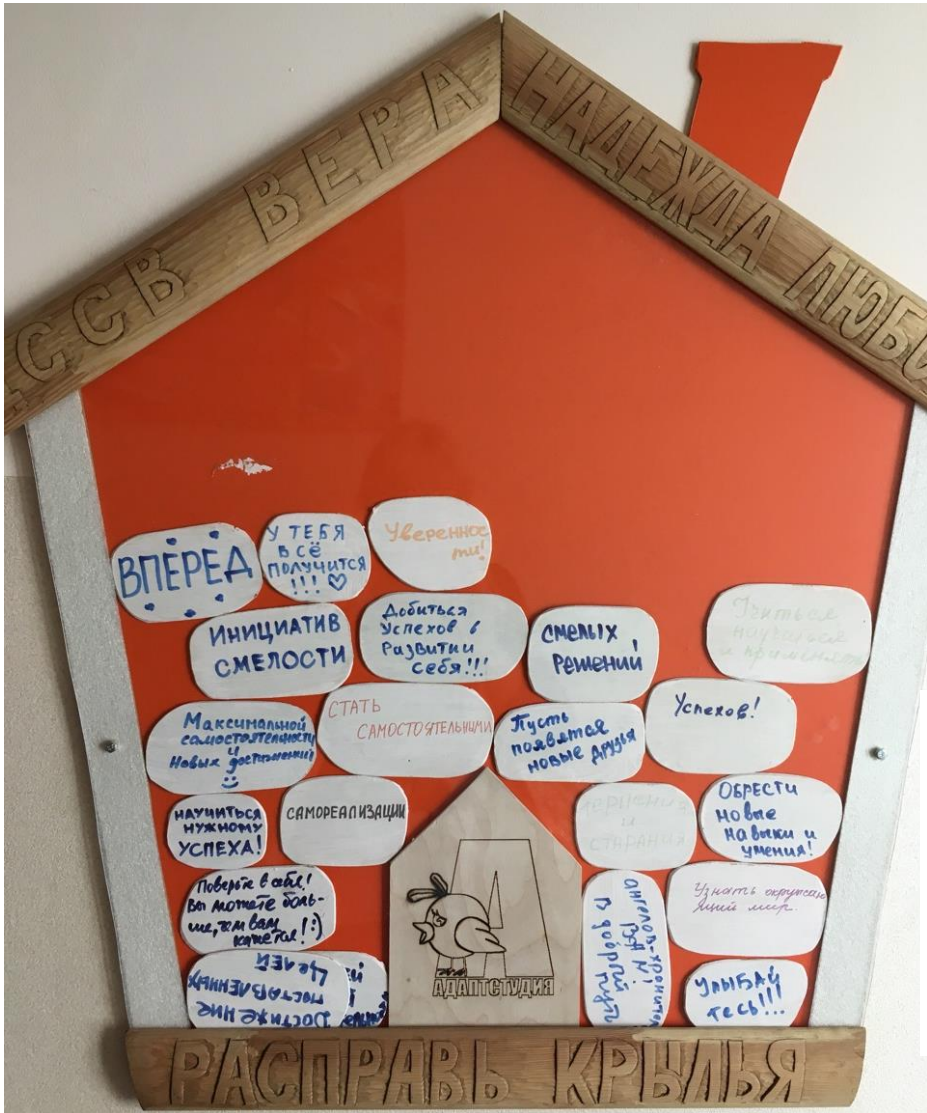 ССВ ВЕРА
НАДЕЖДА ЛЮБО
ВПЕРЁД
У ТЕБЯ
ВСЁ
ПОЛУЧИТСЯ
!!!
Уверенnос
ти!
ИНИЦИАТИВ
СМЕЛОСТИ
Добиться
Успехов в
Развитии
Себя!!!
СМЕЛЫХ
РЕШЕНИЙ
Учиться
научиться
и применять
Максимальной
самостоятельности
и
Новых достижений
СТАТЬ
САМОСТОЯТЕЛЬНЫМИ
Пусть
появятся
новые друзья
Успехов!
НАУЧИТЬСЯ
НУЖНОМУ
УСПЕХА!
САМОРЕАЛИЗАЦИИ
терпения
и
старания
ОБРЕСТИ
новые
навыки и
умения!
Поверьте в себя!
Вы можете боль-
ше, чем вам
кажется! :)
ангелов-хронител
ВАМ!
В добрый путь
Узнать окружаю
ящий мир.
Достижение
поставленных
Целей
УЛЫБАЙ
тесь!!!
АДАПТСТУДИЯ
РАСПРАВЬ КРЫЛЬЯ